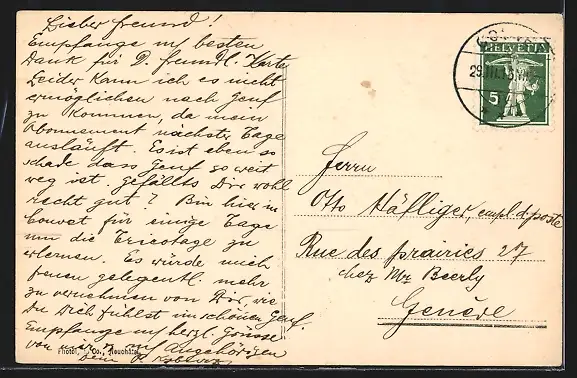 Lieber Freund!
Empfange m/ besten
Dank für D. freundl. Karte
Leider kann ich es nicht
ermöglichen nach Genf
zu kommen, da mein
Abonnement nächster Tage
ausläuft. Es ist eben so
schade dass Genf so weit
weg ist. Gefällts Dir wohl
recht gut? Bin hier in
Couvet für einige Tage
um die Tricotage zu
erlernen. Es würde mich
freuen gelegentl. mehr
zu vernehmen von Dir, wie
Du Dich fühlst im schönen Genf
Empfange m/ herzl. Grüsse
von mir u. m/ Angehörigen
Dein
Phototypie Co., Neuchâtel
HELVETIA
5
29.III.
Herrn
Otto Häfliger, empl. d. poste
Rue des prairies 27
chez Mr Beerly
Genève